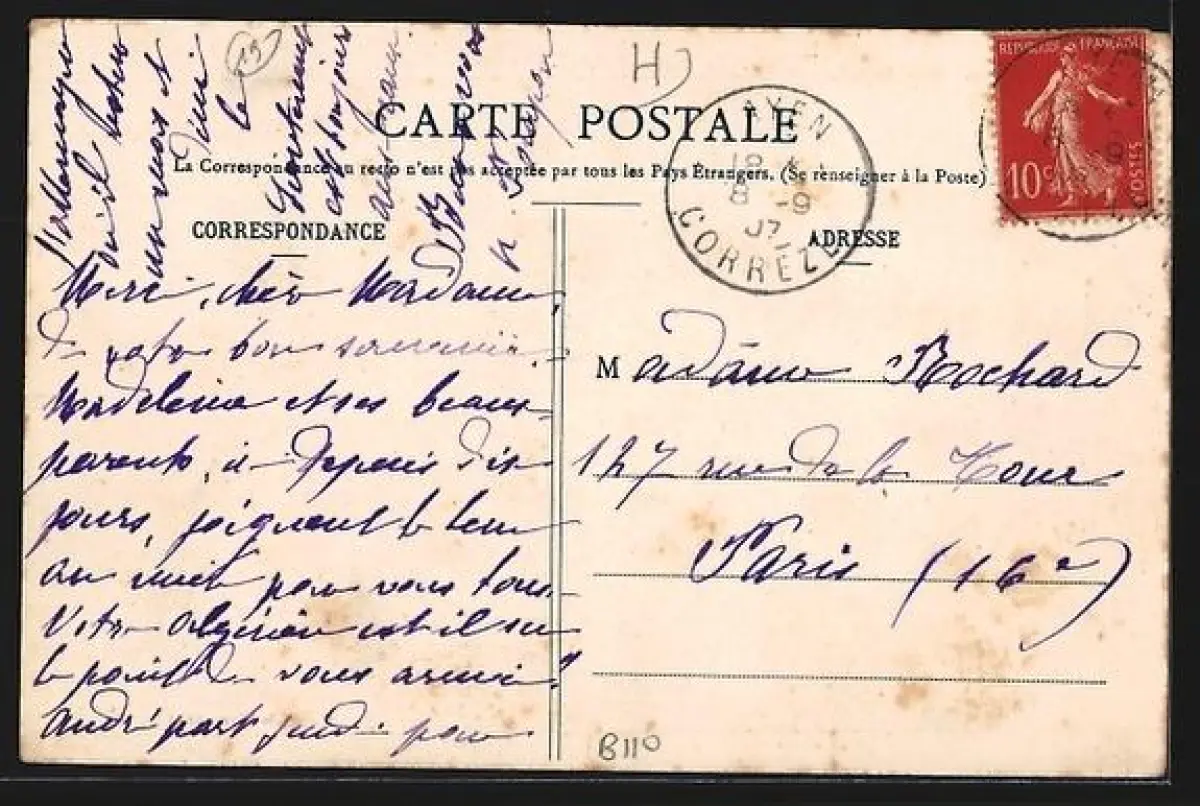 CARTE POSTALE
La Correspondance au recto n'est pas acceptée par tous les Pays Étrangers. (Se renseigner à la Poste)
CORRESPONDANCE
ADRESSE
Merci, chère Madame,
de votre bon souvenir.
Madeleine et ses beaux-
parents, ici depuis dix
jours, joignent le leur
au mien pour vous tous.
Votre algérien est il sur
le point de vous arriver?
André part jeudi pour
l'Allemagne
où il restera
un mois et
demi
le
est toujours
Madame Rochard
127 rue de la Tour
Paris (16e)
AYEN
8 -9
07
CORREZE
REPUBLIQUE FRANÇAISE
10c
POSTES
H
13
B110